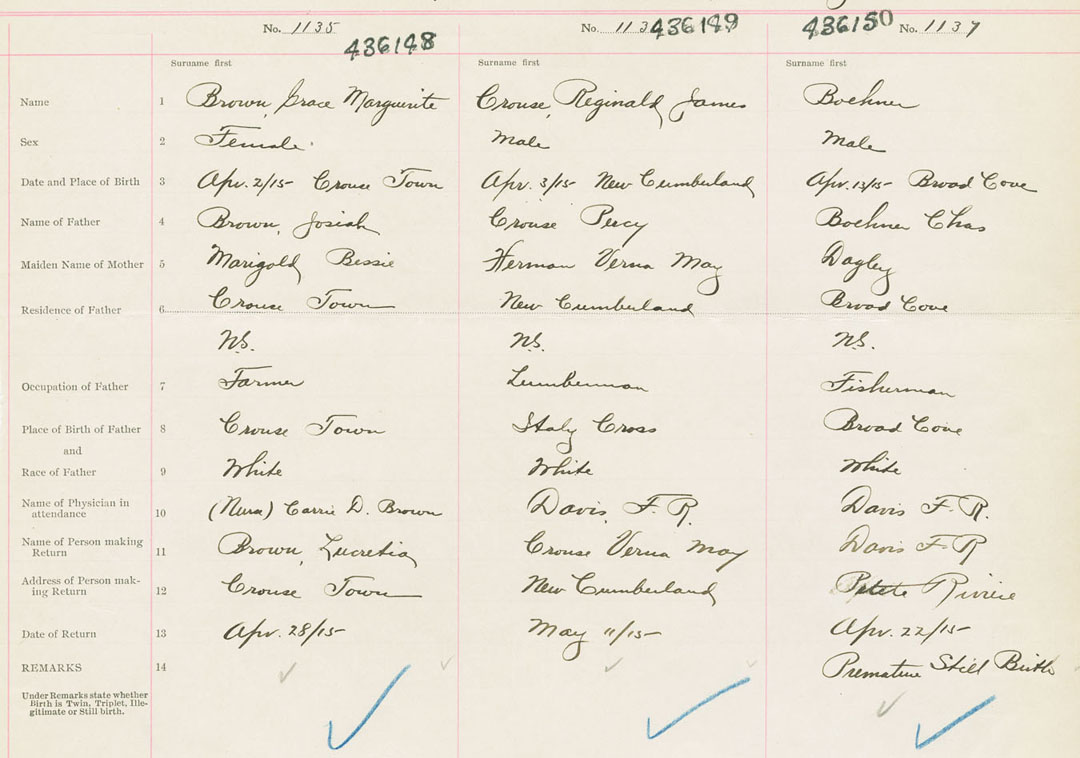 No. 1135 436148 No. 113 436149 436150 No. 1137
Surname first Surname first Surname first
Name 1 Brown, Grace Marguerite Crouse, Reginald James Boehner
Sex 2 Female Male Male
Date and Place of Birth 3 Apr. 2/15 Crouse Town Apr. 3/15 New Cumberland Apr. 13/15 Broad Cove
Name of Father 4 Brown, Josiah Crouse Percy Boehner Chas
Maiden Name of Mother 5 Marigold Bessie Herman Verna May Dagley
Residence of Father 6 Crouse Town New Cumberland Broad Cove
N.S. N.S. N.S.
Occupation of Father 7 Farmer Lumberman Fisherman
Place of Birth of Father 8 Crouse Town Italy Cross Broad Cove
and
Race of Father 9 White White White
Name of Physician in
attendance 10 (Nurse) Carrie D. Brown Davis, F. R. Davis F. R.
Name of Person making
Return 11 Brown, Lucretia Crouse Verna May Davis F R
Address of Person mak-
ing Return 12 Crouse Town New Cumberland Petite Riviere
Date of Return 13 Apr. 28/15 May 11/15 Apr. 22/15
REMARKS 14 Premature Still Birth
Under Remarks state whether
Birth is Twin, Triplet, Ille-
gitimate or Still birth.